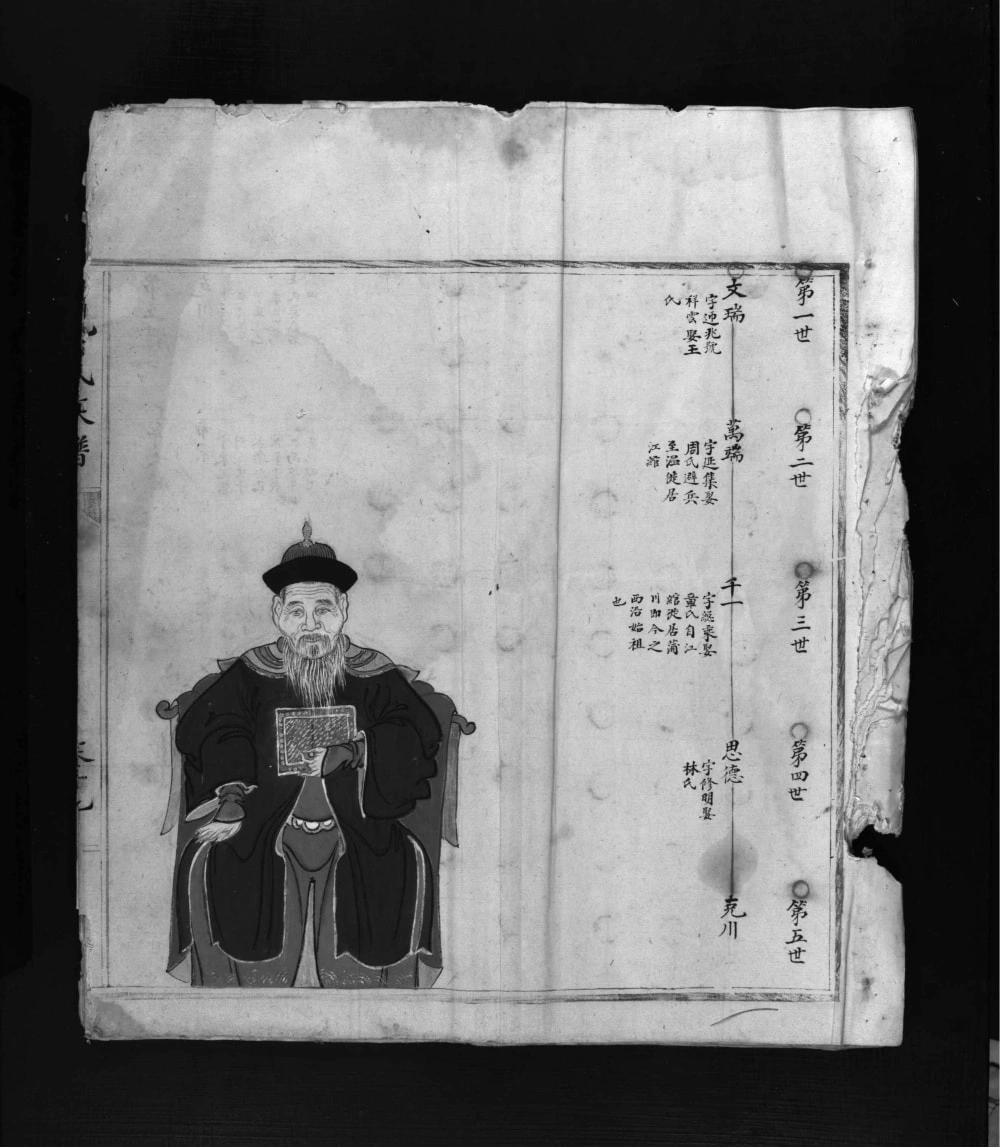 第一世
第二世
第三世
第四世
第五世
文瑞
字迎兆號
祥雲娶王
氏
萬瑞
字延集娶
周氏避兵
至温徙居
江
千一
字
章氏自江
徙居蒲
川即今之
西沿始祖
也
思德
字修明娶
林氏
克川
氏族譜